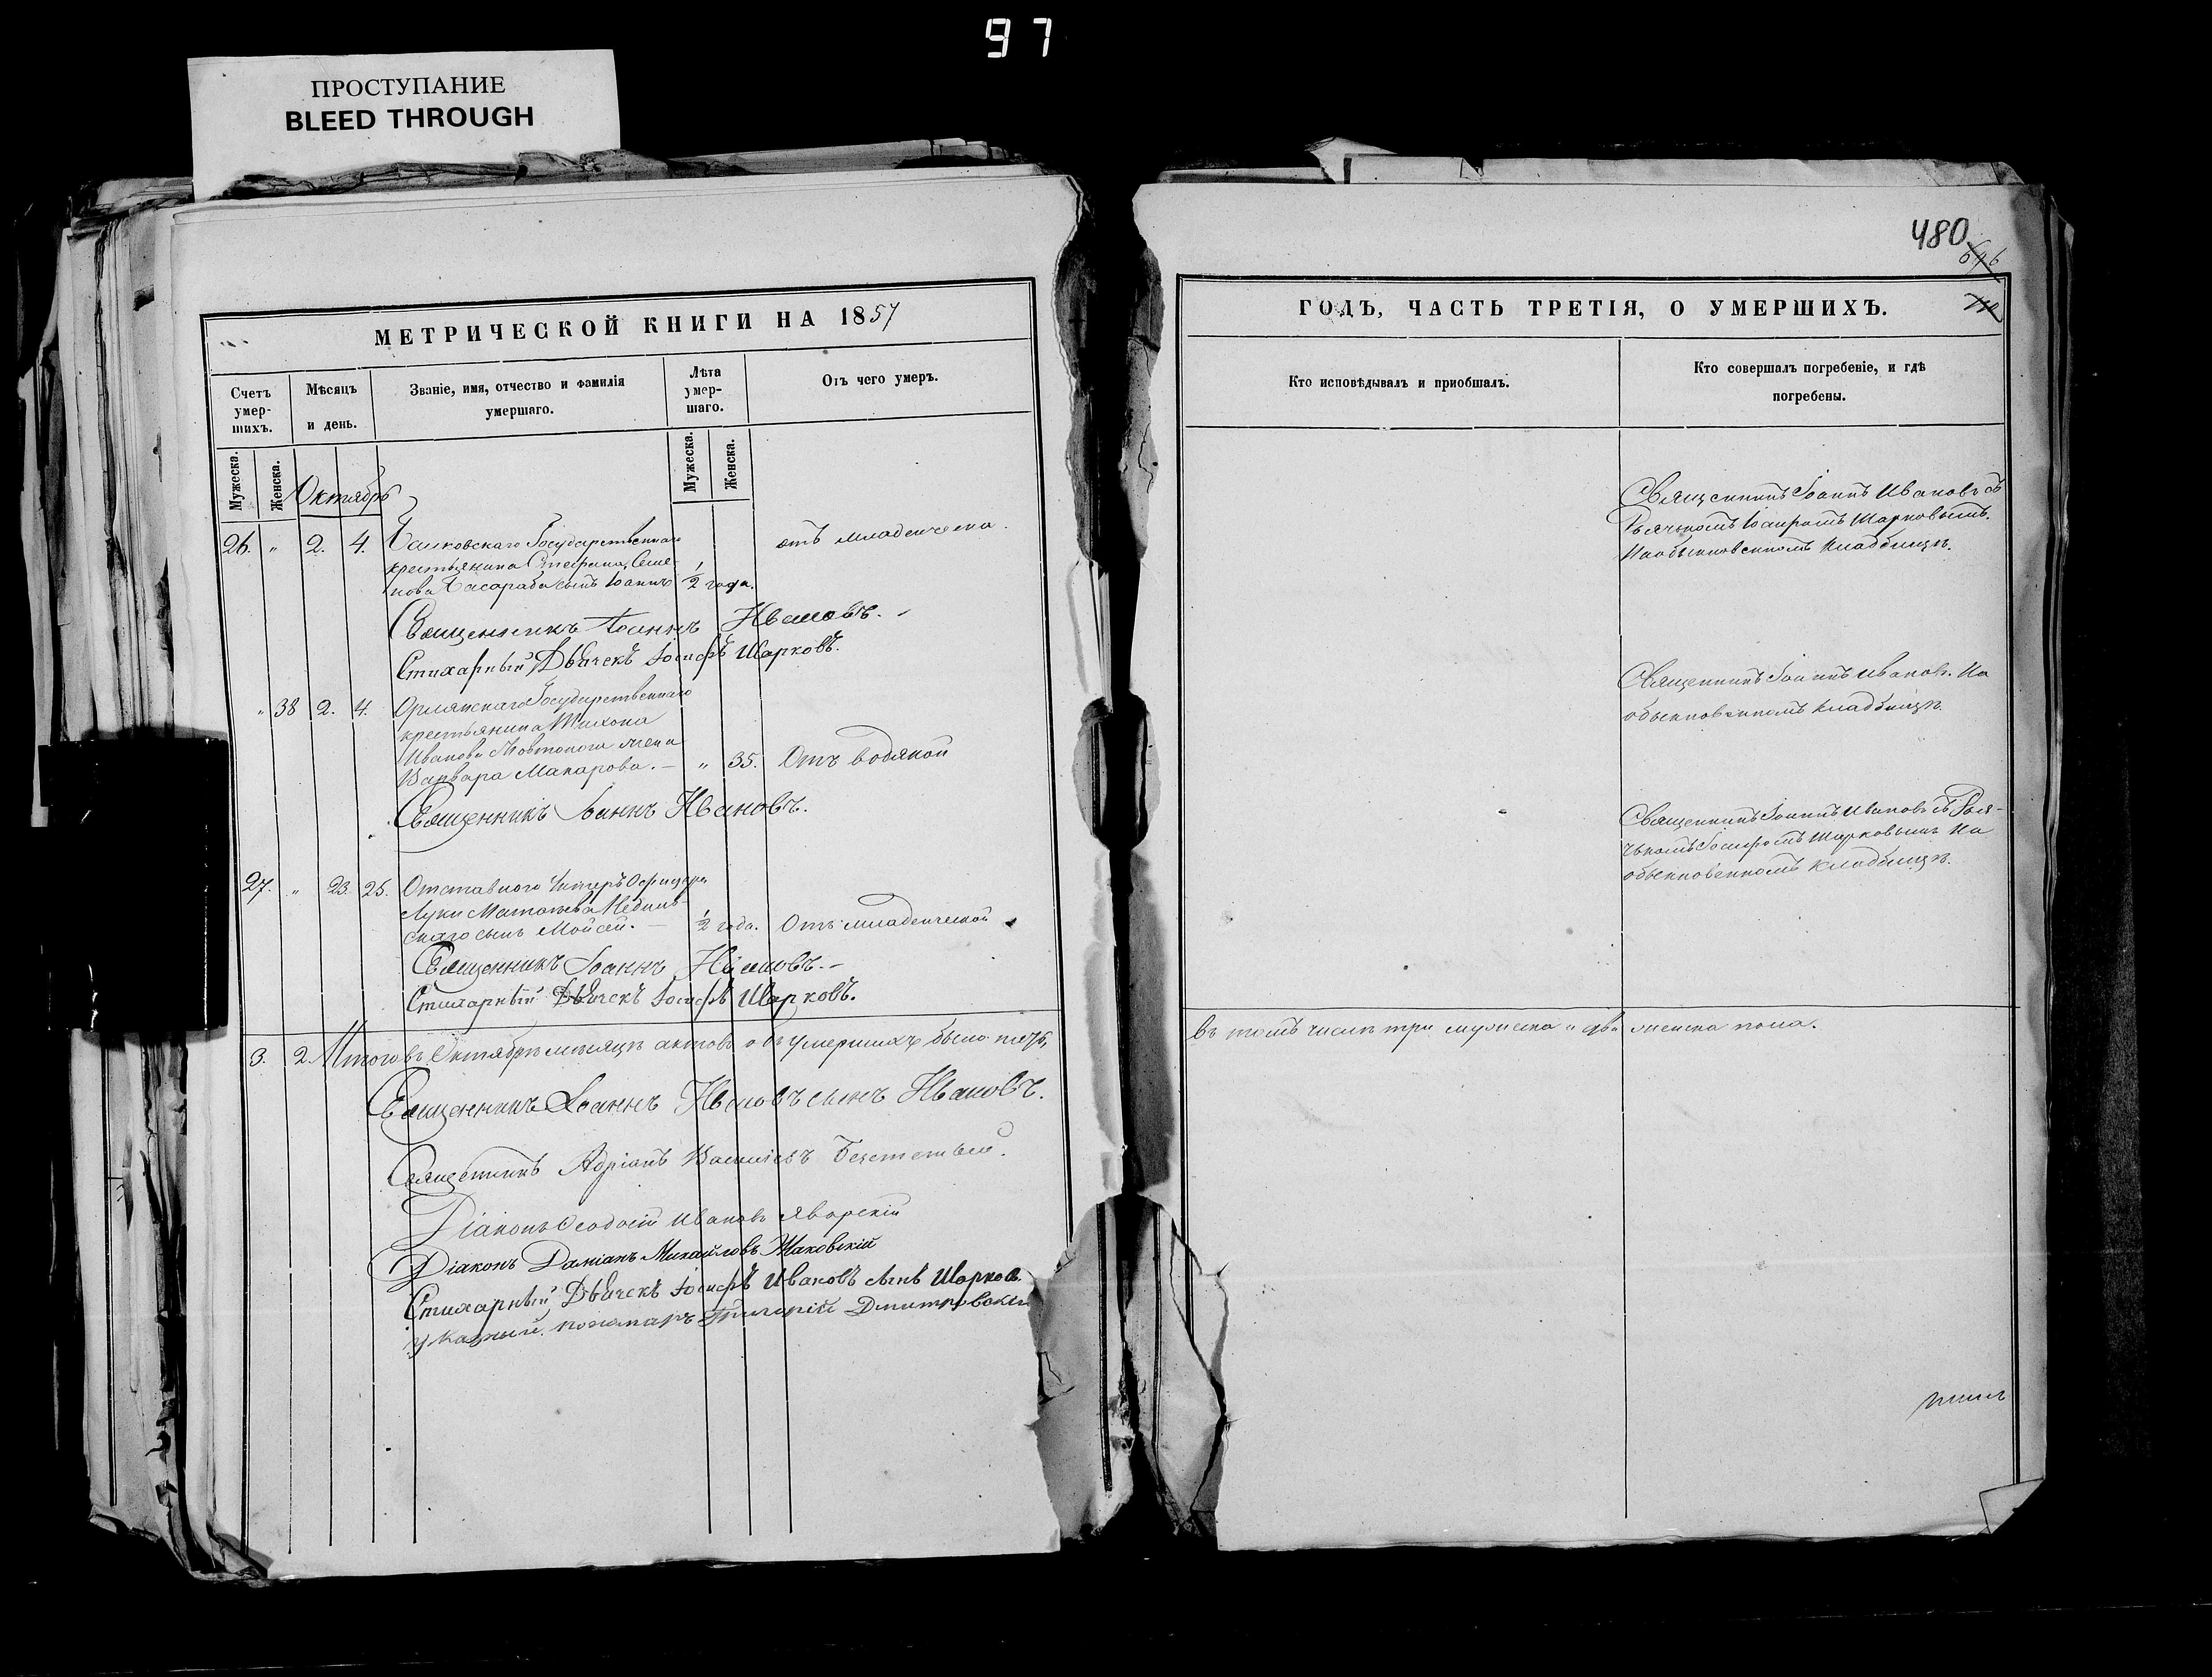 97
ПРОСТУПАНИЕ
BLEED THROUGH
480
696
МЕТРИЧЕСКОЙ КНИГИ НА 1857
ГОДЪ, ЧАСТЬ ТРЕТІЯ, О УМЕРШИХЪ.
Счетъ умер-шихъ.
Мѣсяцъ и день.
Званіе, имя, отчество и фамилія умершаго.
Лѣта умер-шаго.
Отъ чего умеръ.
Кто исповѣдывалъ и пріобщалъ.
Кто совершалъ погребеніе, и гдѣ погребены.
Мужеска. Женска.
Мужеска. Женска.
Октябрь
26. " 2. 4. Государственнаго
крестьянина Стефана Семе-
нова Басараба сынъ Іоаннъ 1/2 года.
отъ младенческой.
Священникъ Іоаннъ Ивановъ съ
Дьячкомъ Іосифомъ Шарковымъ.
На обыкновенномъ кладбищѣ.
Священникъ Іоаннъ Ивановъ.
Стихарный Дьячекъ Іосифъ Шарковъ.
" 38 2. 4. Орлянскаго Государственнаго
крестьянина Тихона
Иванова Жовтоного жена
Варвара Макарова. — " 35. Отъ водяной
Священникъ Іоаннъ Ивановъ. На
обыкновенномъ кладбищѣ.
Священникъ Іоаннъ Ивановъ.
27. " 23. 25. Отставнаго Унтеръ Офицера
Луки Матвѣева
скаго сынъ Мойсей. — 1/2 года. Отъ младенческой
Священникъ Іоаннъ Ивановъ съ Дья-
чкомъ Іосифомъ Шарковымъ На
обыкновенномъ кладбищѣ.
Священникъ Іоаннъ Ивановъ. —
Стихарный Дьячекъ Іосифъ Шарковъ.
3. 2. Итого въ Октябрѣ мѣсяцѣ актовъ объ умершихъ было пять,
въ томъ числѣ три мужеска и два женска пола.
Священникъ Іоаннъ Ивановъ сынъ Ивановъ.
Священникъ Адріанъ Васильевъ
Діаконъ Ѳеодосій Ивановъ Яворскій
Діаконъ Даміанъ Михайловъ Жаковскій
Стихарный Дьячекъ Іосифъ Ивановъ сынъ Шарковъ
указный пономарь Григорій Дмитровскій